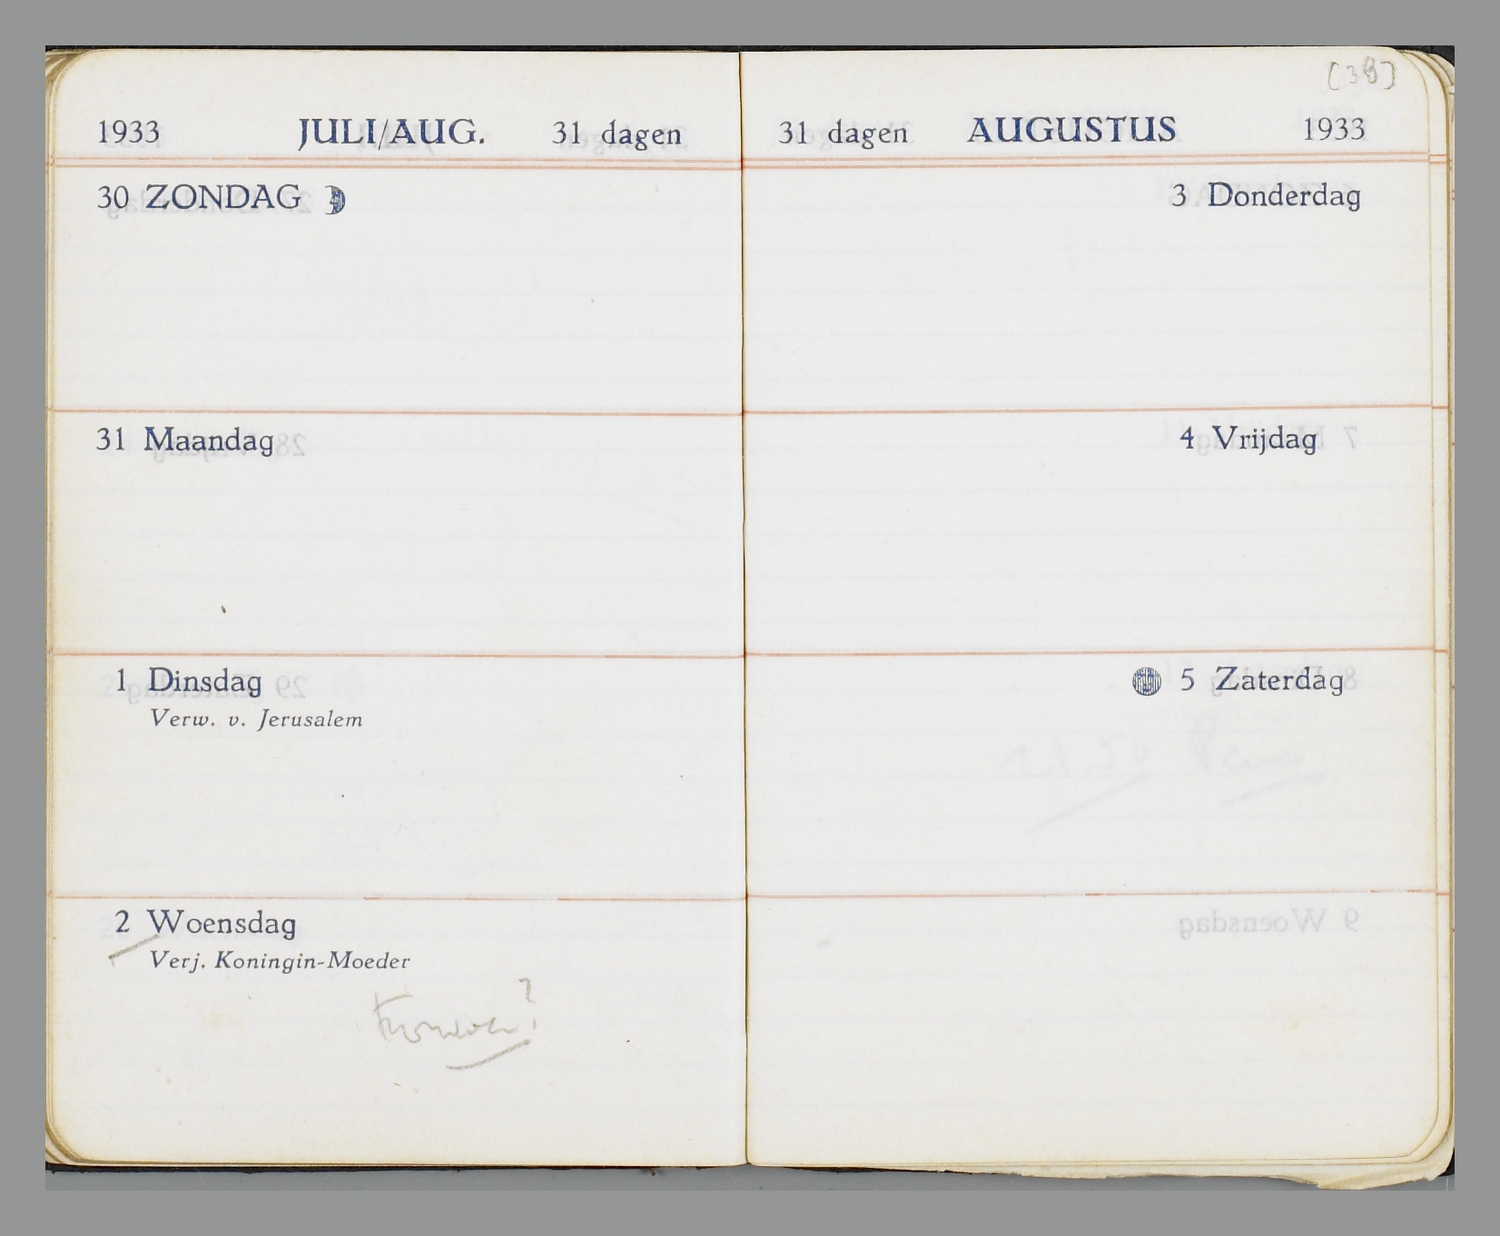 1933 JULI/AUG. 31 dagen
30 ZONDAG
31 Maandag
1 Dinsdag
Verw. v. Jerusalem
2 Woensdag
Verj. Koningin-Moeder
[38]
31 dagen AUGUSTUS 1933
3 Donderdag
4 Vrijdag
5 Zaterdag